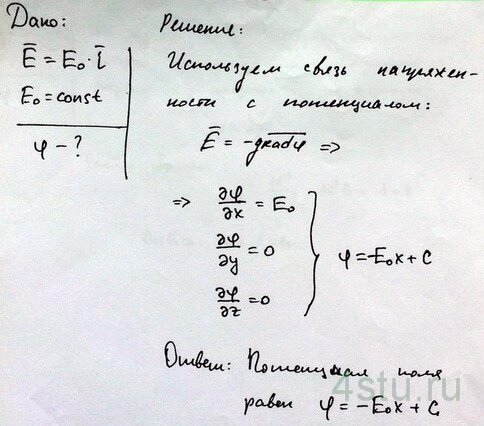 Дано:
Ē = E₀·ī
E₀ = const
φ - ?
Решение:
Используем связь напряжен-
ности с потенциалом:
Ē = -gradφ =>
=> ∂φ/∂x = E₀
∂φ/∂y = 0
∂φ/∂z = 0
φ = -E₀x + C
Ответ: Потенциал поля
равен φ = -E₀x + C
4stu.ru